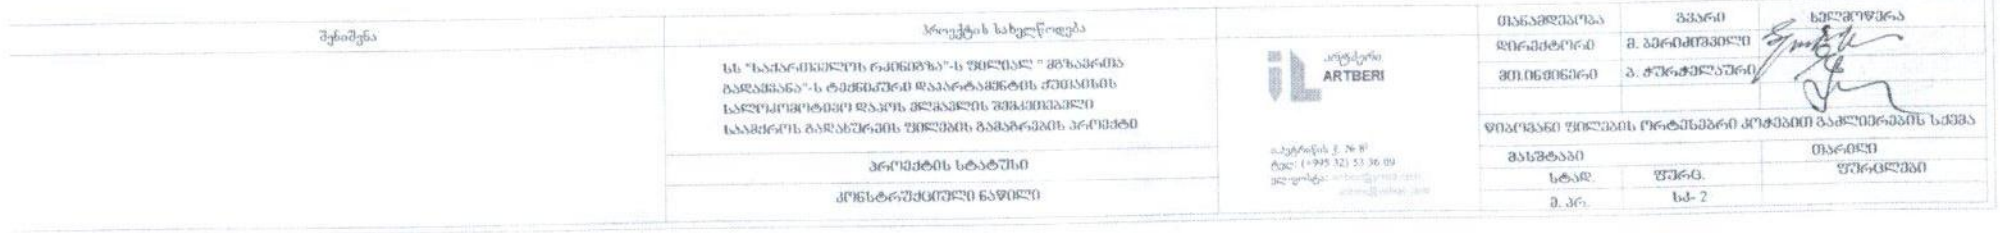 შენიშვნა
პროექტის სახელწოდება
სს "საქართველოს რკინიგზა"-ს ფილიალ " მგზავრთა
გადაყვანა"-ს ტექნიკური დეპარტამენტის ქუთაისის
სალოკომოტივო დეპოს ელმავლის შემკეთებელი
საამქროს გადახურვის ფილების გამაგრების პროექტი
პროექტის სტატუსი
კონსტრუქციული ნაწილი
არტბერი
ARTBERI
ტელ: (+995 32) 53 36 09
თანამდებობა გვარი ხელმოწერა
დირექტორი მ. ბერიძიშვილი
მთ.ინჟინერი
წიბოვანი ფილების ორტესებრი კოჭებით გაძლიერების სქემა
მასშტაბი თარიღი
სტად. ფურც. ფურცლები
მ. პრ. სკ- 2